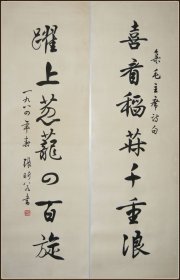 集毛主席诗句
喜看稻菽千重浪
跃上葱茏四百旋
一九八四年春